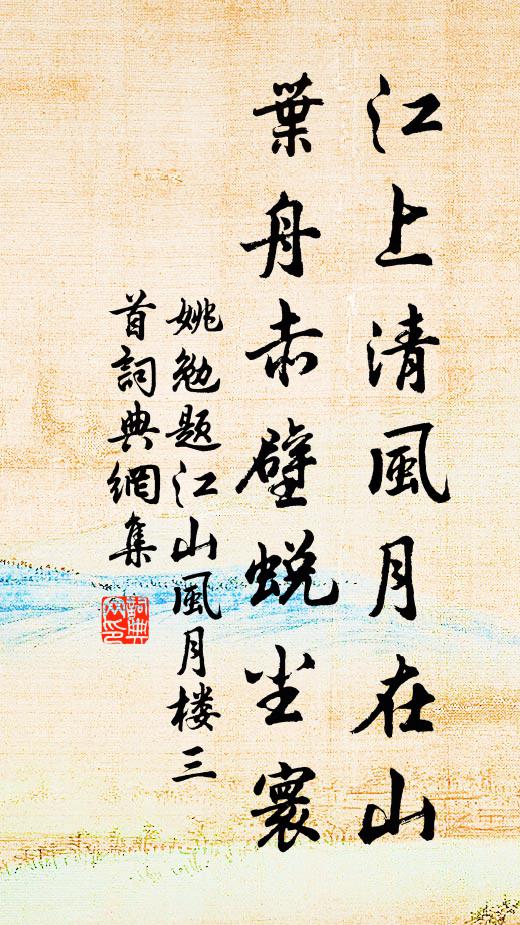 江上清風月在山
葉舟赤壁蛻尘寰
姚勉题江山風月楼三
首詞典網集